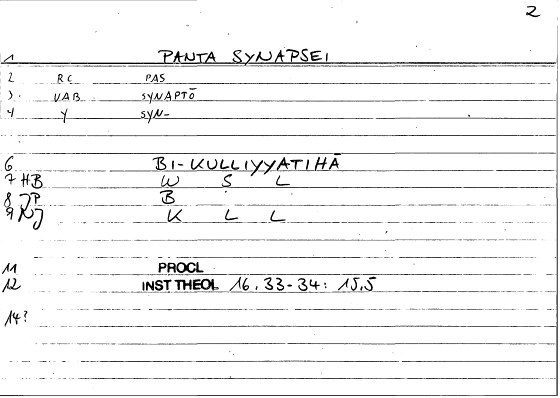 2
1 PANTA SYNAPSEI
2 RC PAS
3. VAB SYNAPTŌ
4 Y SYN-
6 BI-KULLIYYATIHĀ
7 HB W S L
8 JP B
9 NJ K L L
11 PROCL
12 INST THEOL 16.33-34: 15,5
14?